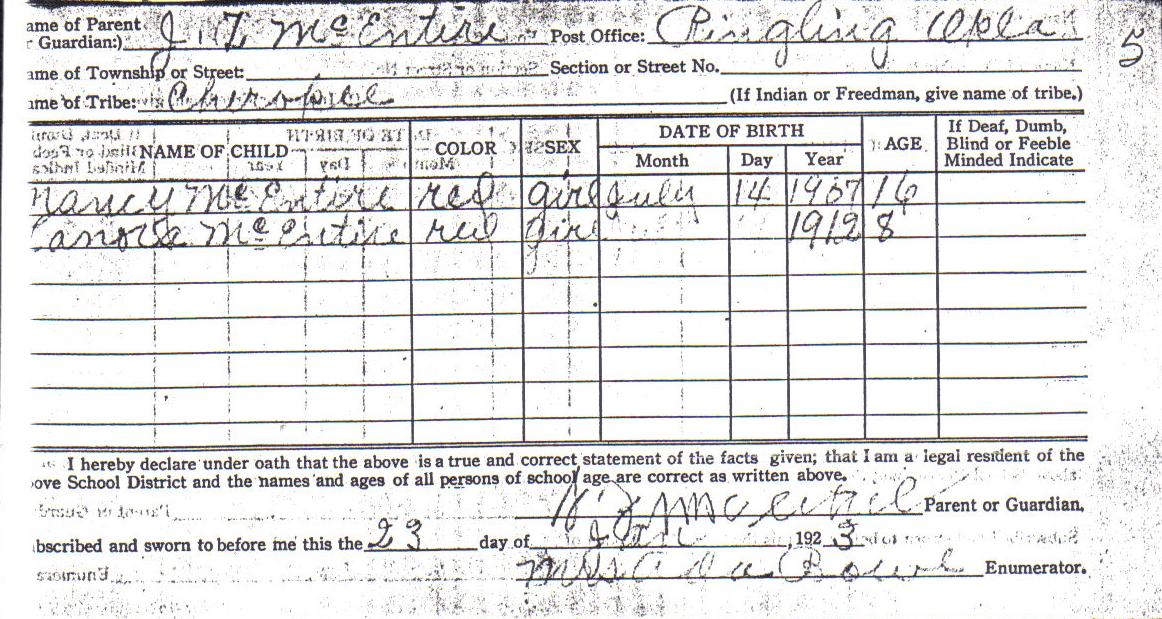 ame of Parent
r Guardian:) J. T. McEntire Post Office: Ringling Okla
5
ame of Township or Street: Section or Street No.
ame of Tribe: Cherokee (If Indian or Freedman, give name of tribe.)
NAME OF CHILD COLOR SEX DATE OF BIRTH AGE If Deaf, Dumb, Blind or Feeble Minded Indicate
Month Day Year
Nancy McEntire red girl July 14 1907 16
McEntire red girl 1912 8
I hereby declare under oath that the above is a true and correct statement of the facts given; that I am a legal resident of the
ove School District and the names and ages of all persons of school age are correct as written above.
Parent or Guardian.
bscribed and sworn to before me this the 23 day of Jan , 192 3
Mrs Ada Enumerator.